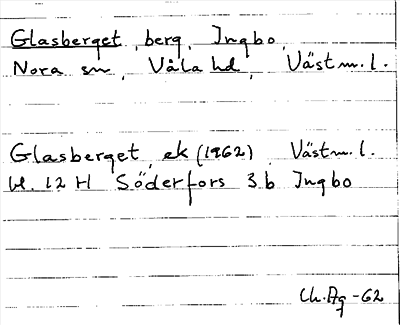 Glasberget, berg, Ingbo,
Nora sn, Våla hd, Västm.l.
Glasberget, ek (1962) Västm.l.
bl. 12 H Söderfors 3 b Ingbo
Ch.Ag -62